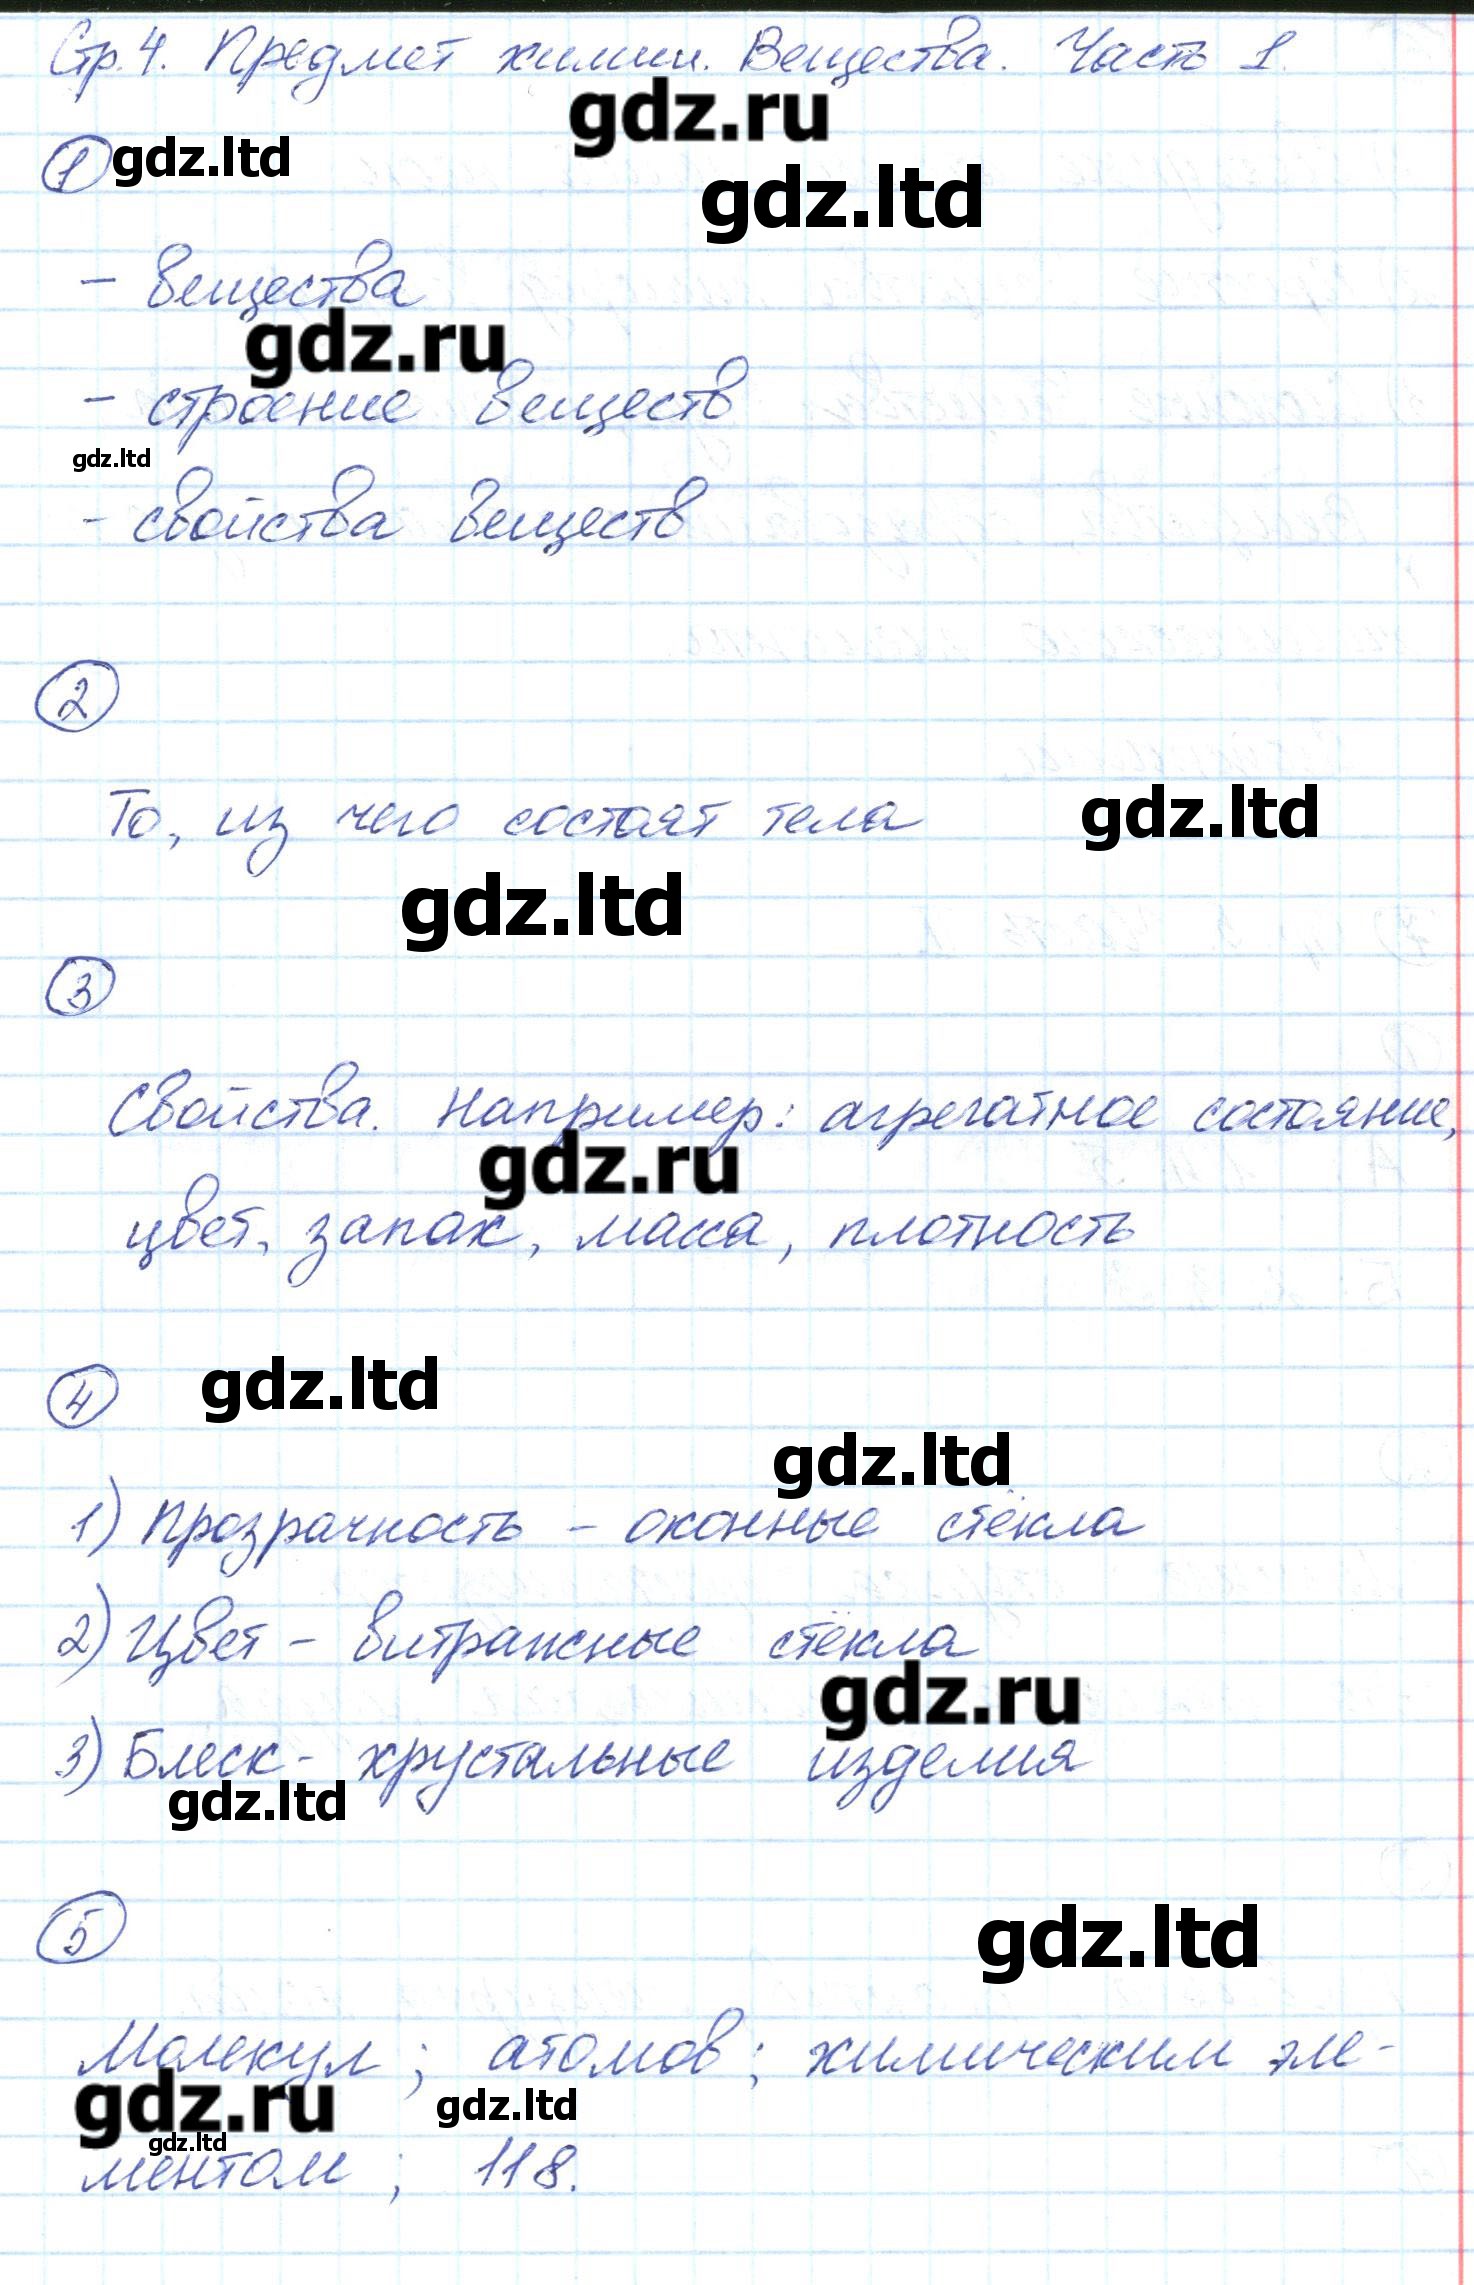 Стр. 4. Предмет химии. Вещества. Часть 1.
gdz.ru
1 gdz.ltd
gdz.ltd
- вещества
gdz.ru
- строение веществ
gdz.ltd
- свойства веществ
2
То, из чего состоят тела
gdz.ltd
gdz.ltd
3
Свойства. Например: агрегатное состояние,
gdz.ru
цвет, запах, масса, плотность
4
gdz.ltd
gdz.ltd
1) Прозрачность - оконные стёкла
2) Цвет - витражные стёкла
gdz.ru
3) Блеск - хрустальные изделия
gdz.ltd
5
gdz.ltd
Молекул; атомов; химическим эле-
gdz.ru
gdz.ltd
gdz.ltd
ментом; 118.